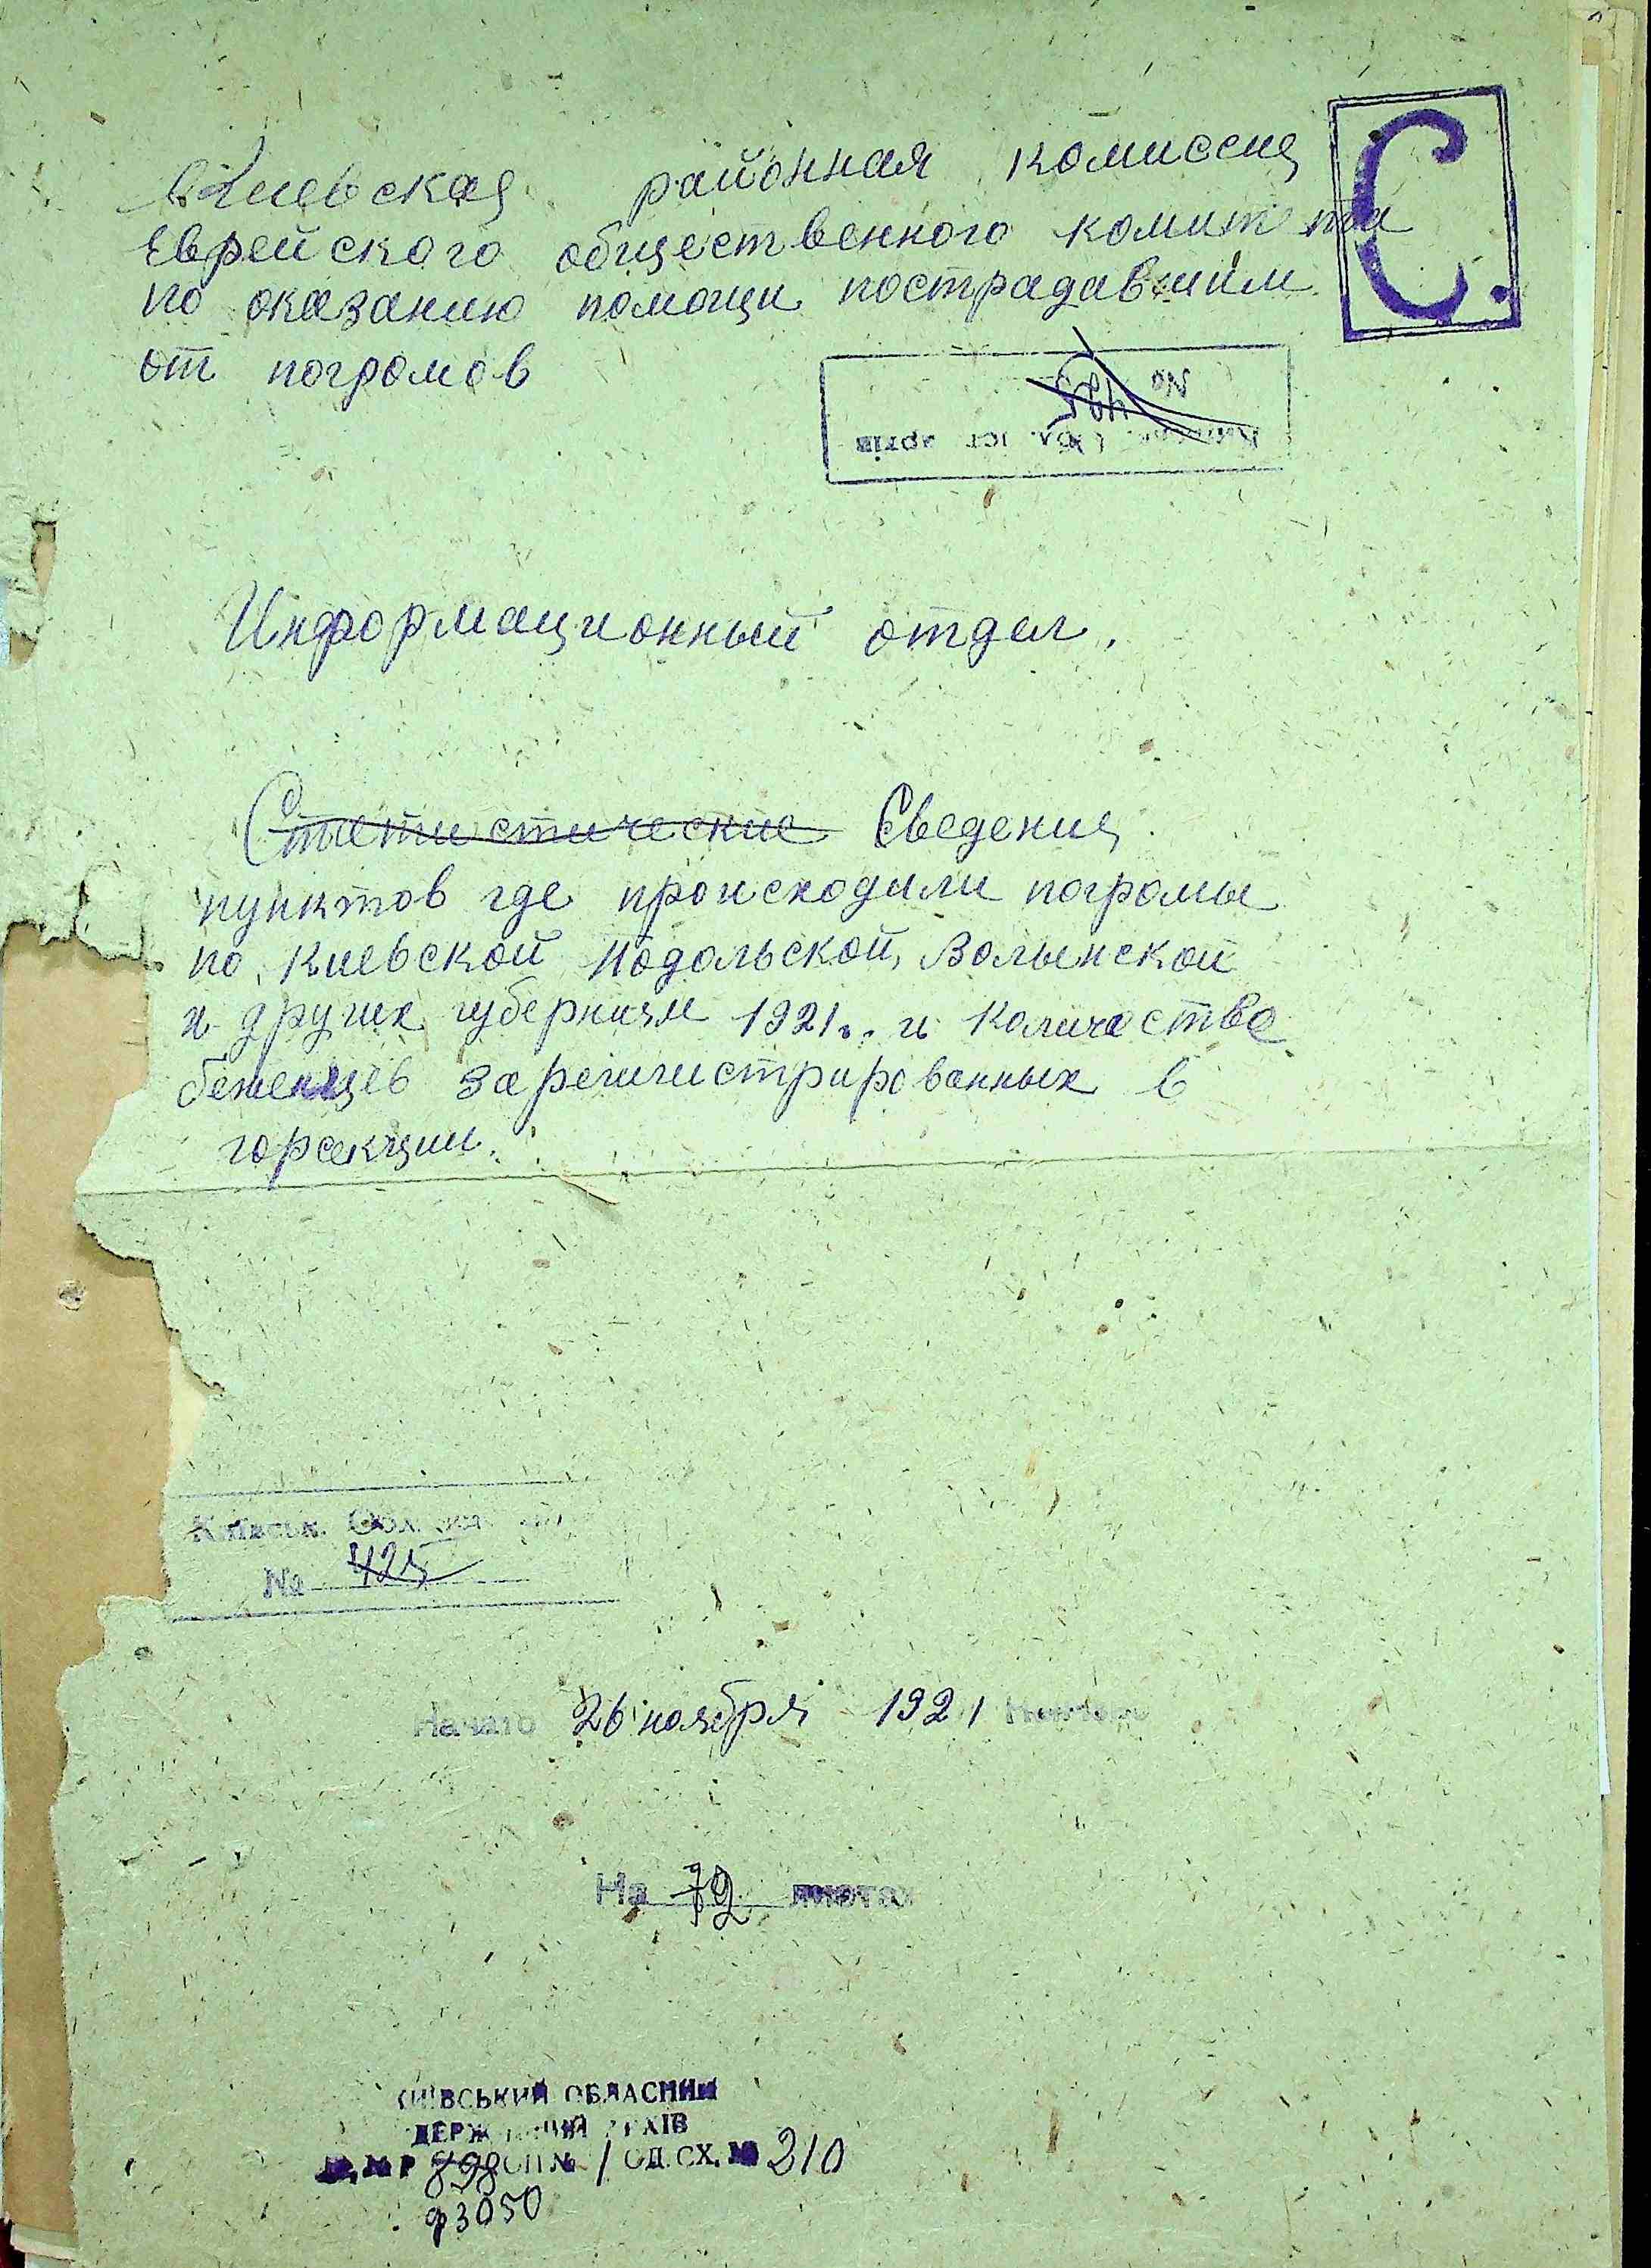 С.
Киевская районная комиссия
Еврейского общественного комитета
по оказанию помощи пострадавшим
от погромов
№ 425
Обл. іст. архів
Информационный отдел.
Статистические Сведения
пунктов где происходили погромы
по Киевской Подольской, Волынской
и других губерниям 1921г. и количество
беженцев зарегистрированных в
горсекции.
Київськ. Обл. іст.
№ 425
Начато 26 ноября 1921
На 72 листах
КИЇВСЬКИЙ ОБЛАСНИЙ
ДЕРЖАВНИЙ АРХІВ
№ Р 898 ОП № 1 ОД. СХ. № 210
ф 3050